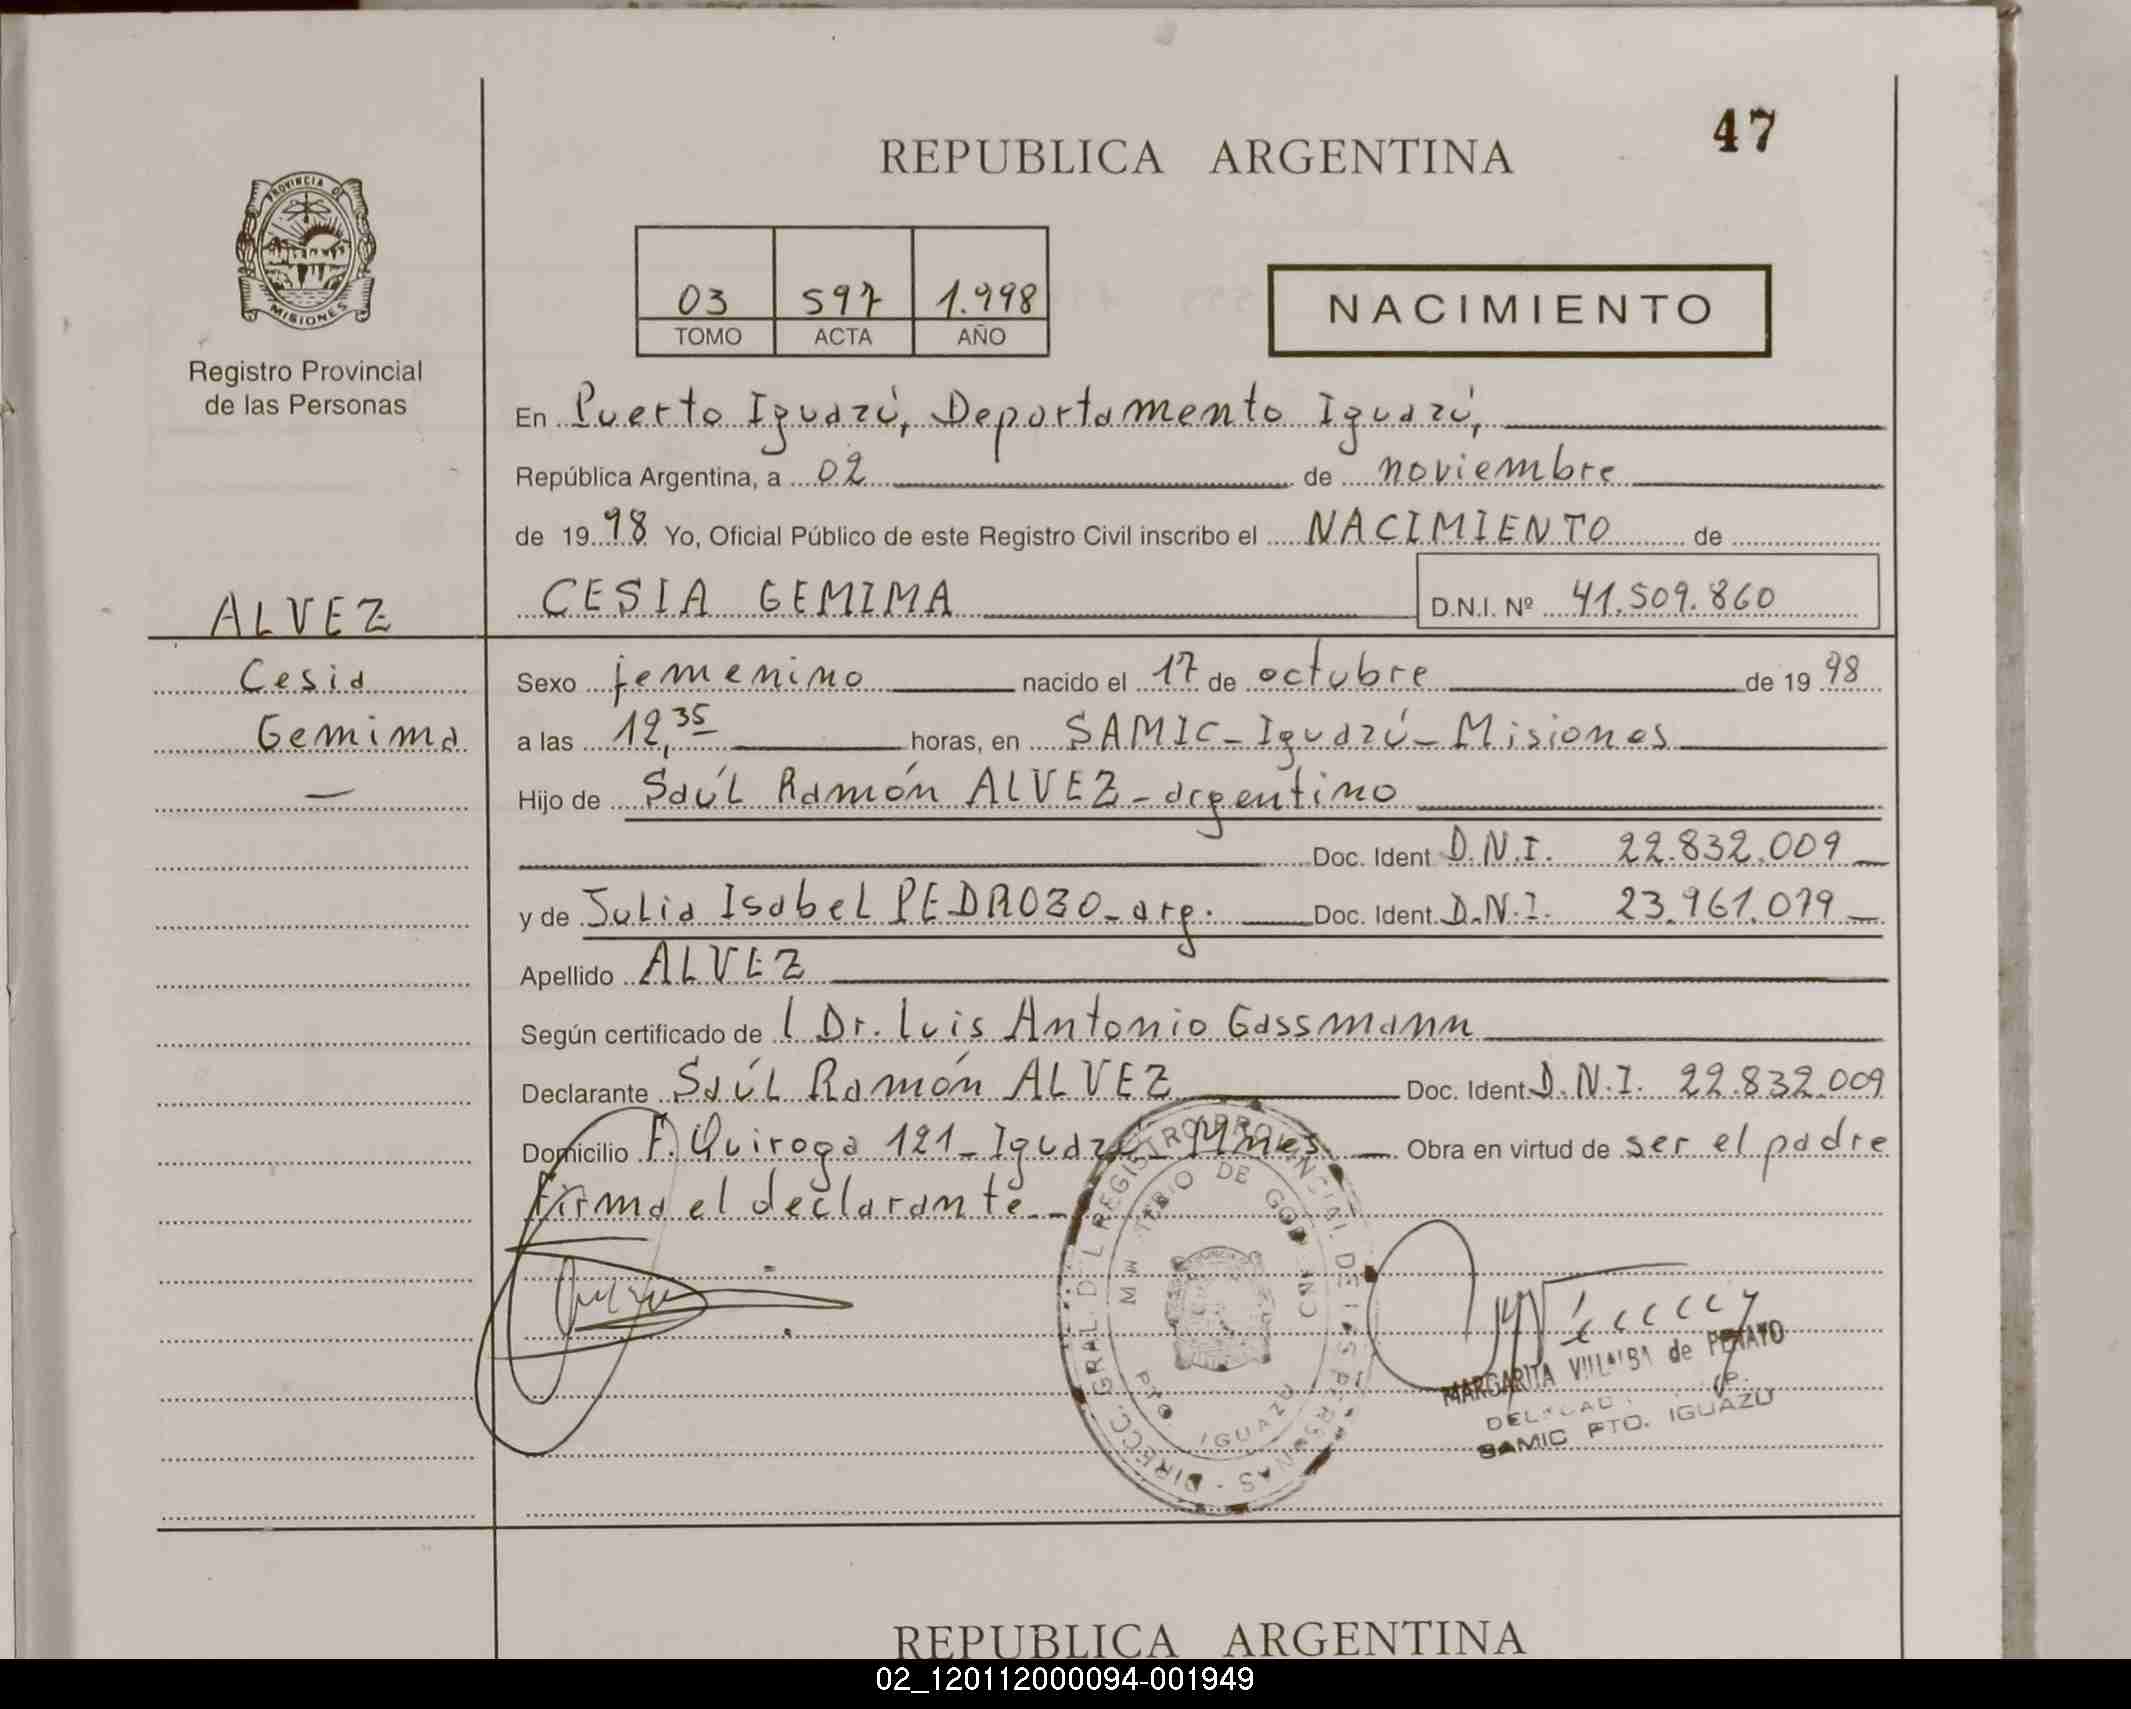 47
REPUBLICA ARGENTINA
PROVINCIA DE
MISIONES
Registro Provincial
de las Personas
03 597 1.998
TOMO ACTA AÑO
NACIMIENTO
En Puerto Iguazú, Departamento Iguazú,
República Argentina, a 02 de noviembre
de 1998 Yo, Oficial Público de este Registro Civil inscribo el NACIMIENTO de
CESIA GEMIMA D.N.I. Nº 41.509.860
ALVEZ
Cesia
Gemima
—
Sexo femenino nacido el 17 de octubre de 1998
a las 12,35 horas, en SAMIC - Iguazú - Misiones
Hijo de Saúl Ramón ALVEZ - argentino
Doc. Ident. D.N.I. 22.832.009
y de Julia Isabel PEDROZO - arg. Doc. Ident. D.N.I. 23.961.079
Apellido ALVEZ
Según certificado de l Dr. Luis Antonio Gassmann
Declarante Saúl Ramón ALVEZ Doc. Ident. D.N.I. 22.832.009
Domicilio F. Quiroga 121 - Iguazú - Mnes Obra en virtud de ser el padre
Firma el declarante. -
DIRECC. GRAL. DEL REGISTRO PROVINCIAL DE LAS PERSONAS
DE
PTO. IGUAZU
MARGARITA VILLALBA de
SAMIC PTO. IGUAZU
REPUBLICA ARGENTINA
02_120112000094-001949